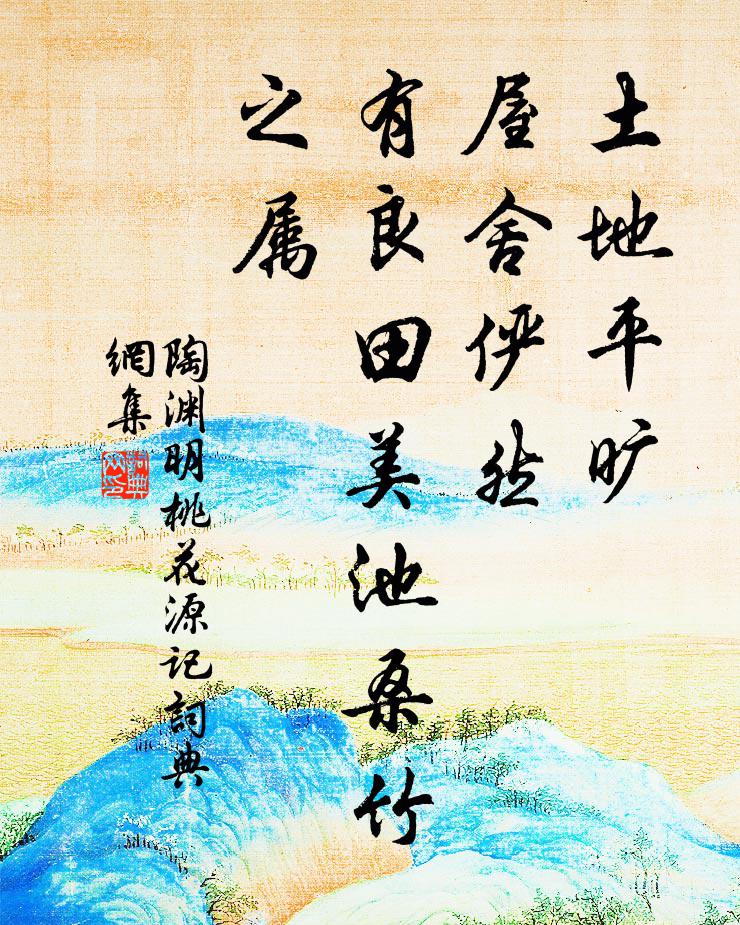 土地平旷
屋舍俨然
有良田美池桑竹
之属
陶渊明桃花源记詞典
網集
詞典